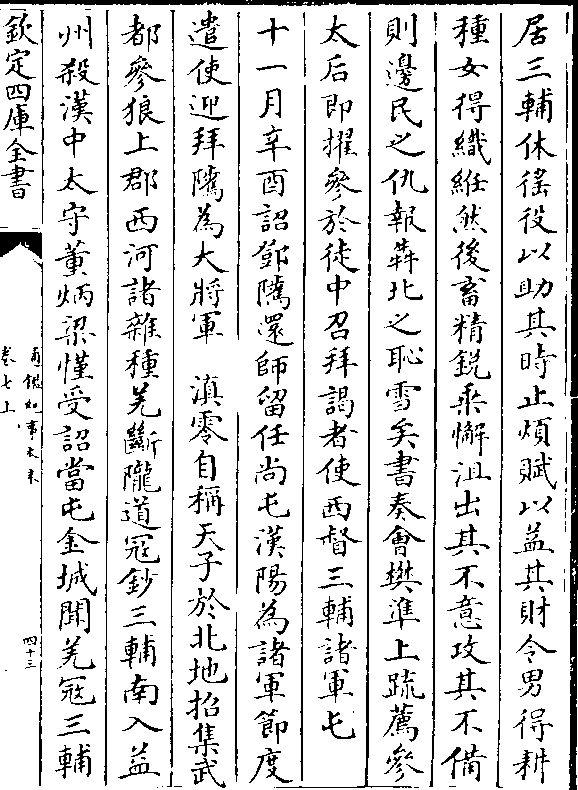 居三輔休徭役以助其時止煩賦以益其財令男得耕
種女得織絍然後畜精鋭乘懈沮出其不意攻其不備
則邊民之仇報犇北之恥雪矣書奏會樊準上疏薦參
太后即擢參於徒中召拜謁者使西督三輔諸軍屯
十一月辛酉詔鄧騭還師留任尚屯漢陽為諸軍節度
遣使迎拜騭為大將軍　滇零自稱天子於北地招集武
都參狼上郡西河諸雜種羌斷隴道寇鈔三輔南入益
州殺漢中太守董炳梁慬受詔當屯金城聞羌寇三輔
欽定四庫全書
通鑑紀事本末
卷七上
四十三